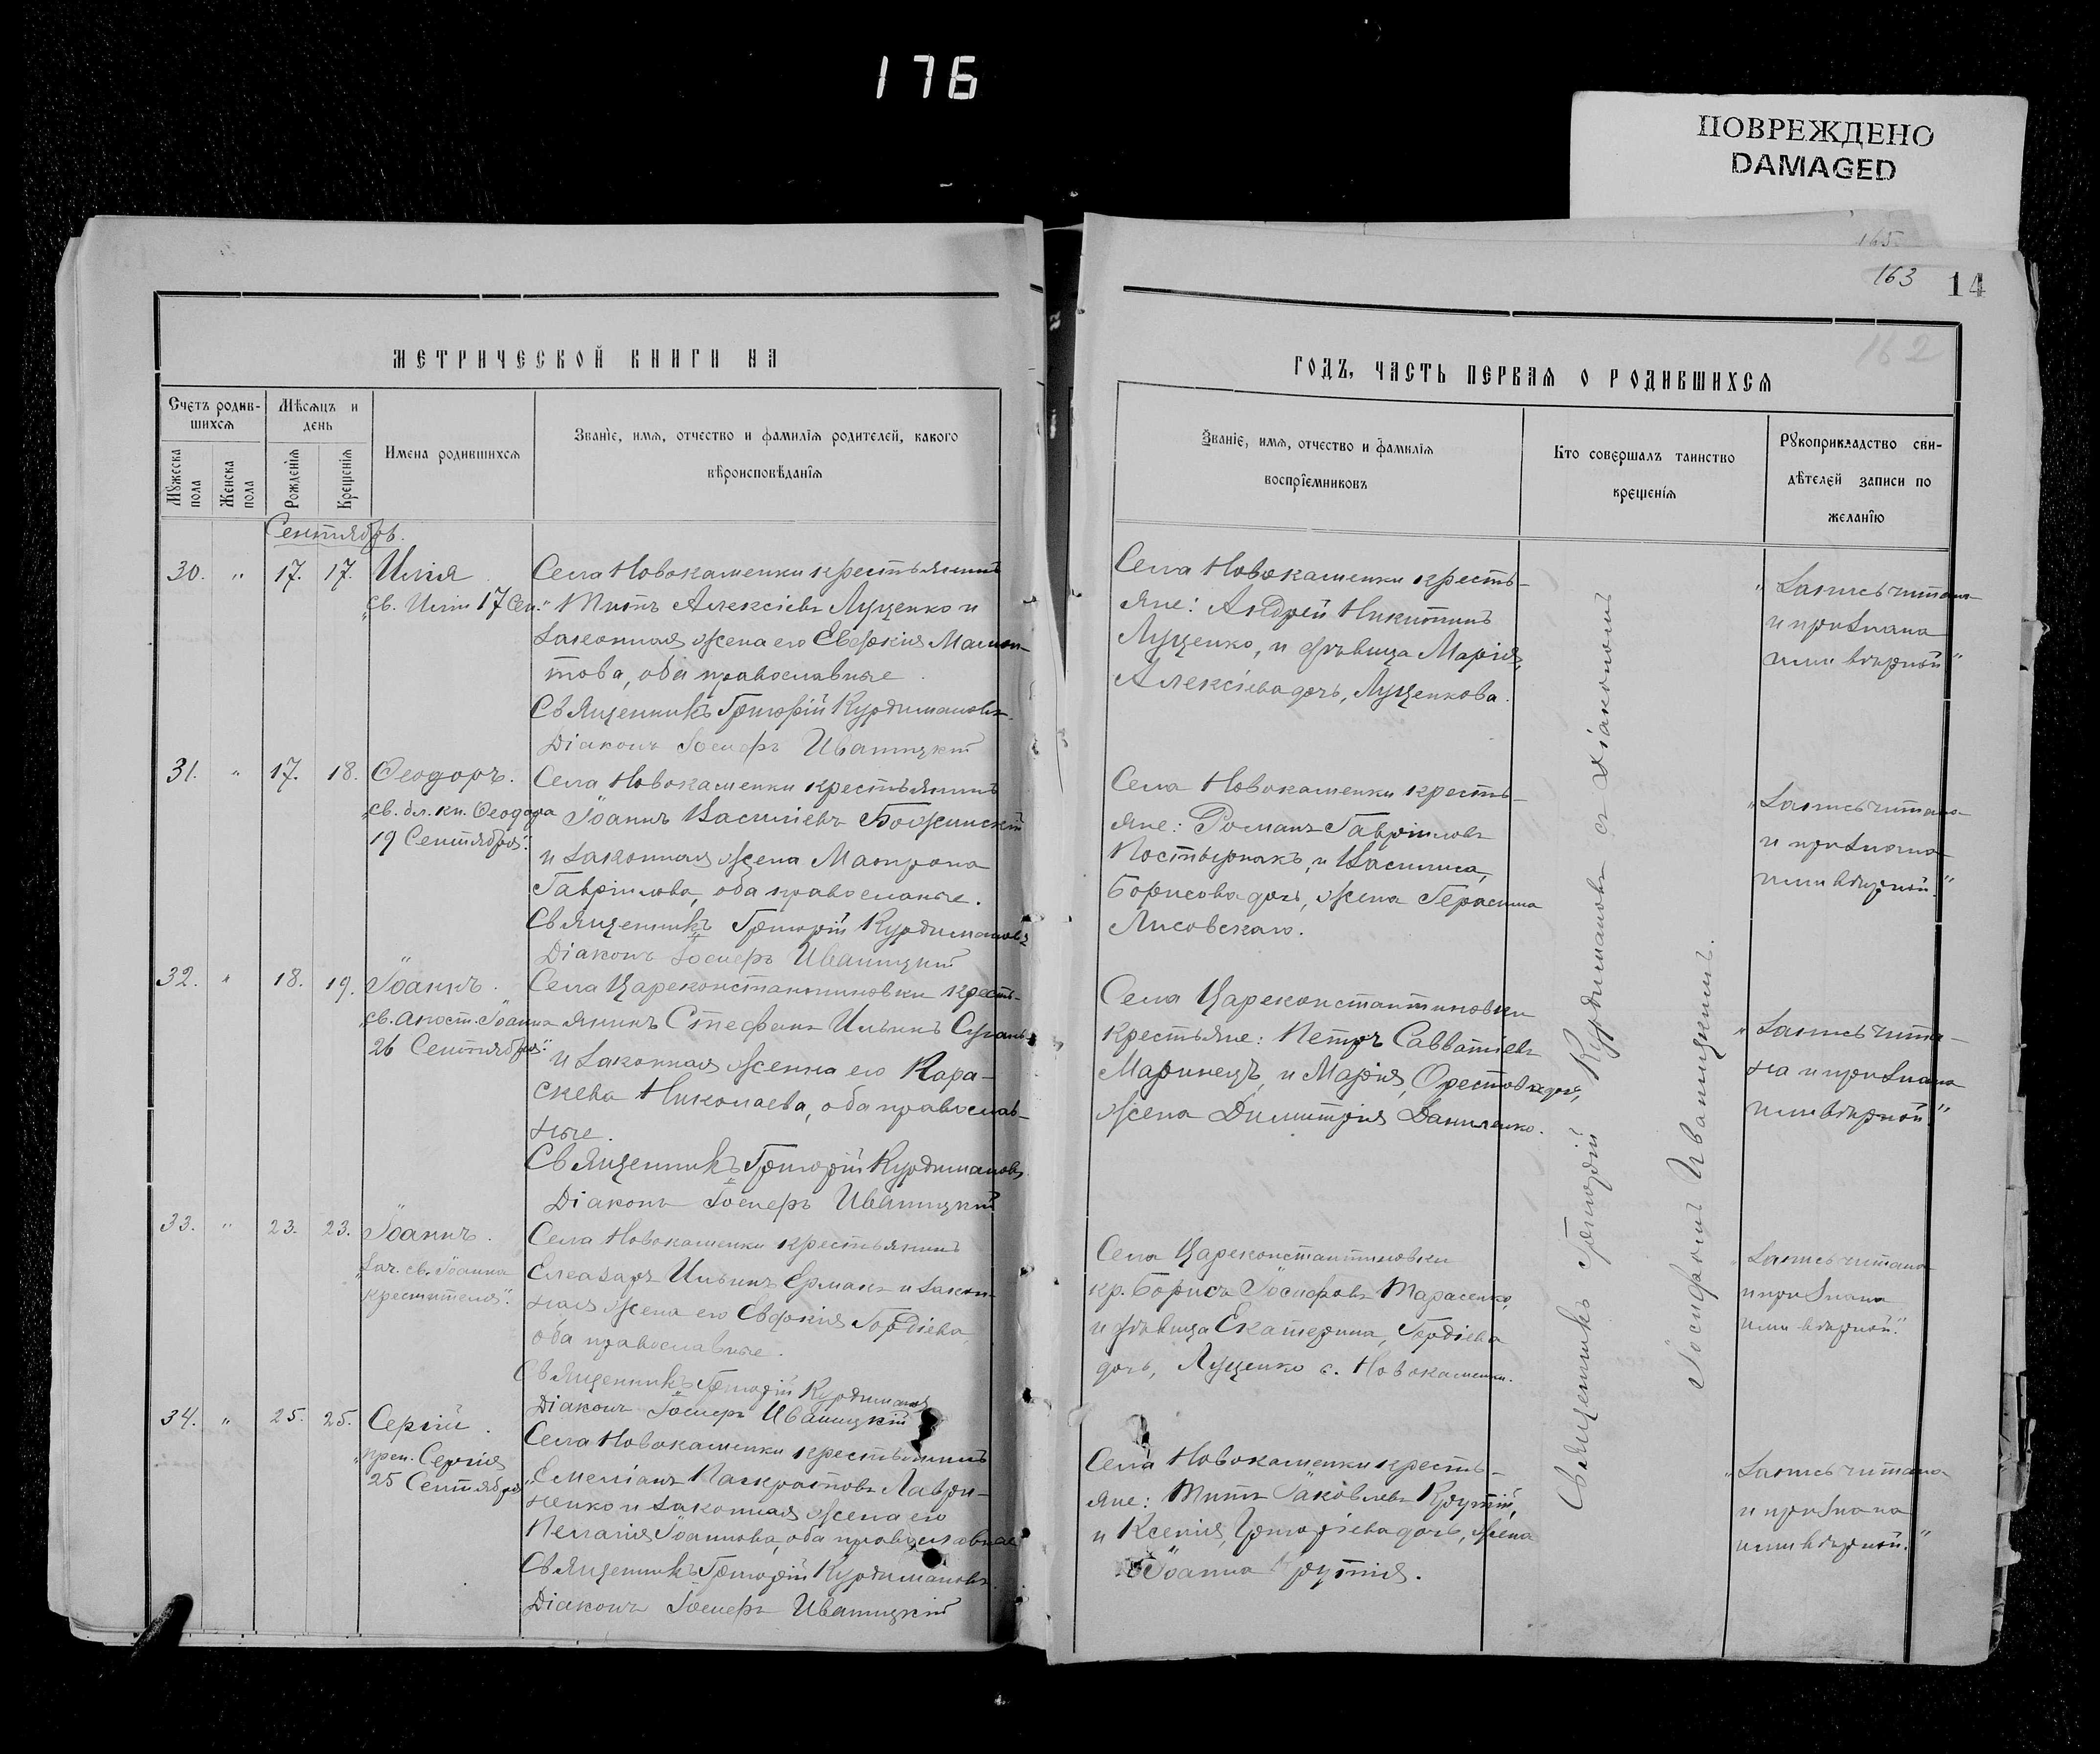 176
ПОВРЕЖДЕНО
DAMAGED
165
163
14
162
МЕТРИЧЕСКОЙ КНИГИ НА
Счетъ родив-
шихся
Мѣсяцъ и
день
Мужеска
пола
Женска
пола
Рожденія
Крещенія
Имена родившихся
Званіе, имя, отчество и фамилія родителей, какого
вѣроисповѣданія
Сентябрь.
30. " 17. 17. Илія
"св. Иліи 17 Сен."
Села Новокаменки крестьянинъ
Титъ Алексіевъ Луценко и
законная жена его Евдокія Мамон-
това, оба православные
Священникъ Григорій Курдимановъ
Діаконъ Іосифъ Иваницкій
31. " 17. 18. Ѳеодоръ.
"св. бл. кн. Ѳеодора
19 Сентября."
Села Новокаменки крестьянинъ
Іоаннъ Василіевъ Божинскій
и законная жена Матрона
Гавріилова, оба православные.
Священникъ Григорій Курдимановъ
Діаконъ Іосифъ Иваницкій
32. " 18. 19. Іоаннъ.
"св. апост. Іоанна
26 Сентября."
Села Цареконстантиновки кресть-
янинъ Стефанъ Ильинъ
и законная женна его Пара-
скева Николаева, оба православ-
ные.
Священникъ Григорій Курдимановъ
Діаконъ Іосифъ Иваницкій
33. " 23. 23. Іоаннъ.
"Зач. св. Іоанна
крестителя."
Села Новокаменки крестьянинъ
Елеазаръ Ильинъ Ермакъ и закон-
ная жена его Евдокія Гордіева,
оба православные.
Священникъ Григорій Курдимановъ
Діаконъ Іосифъ Иваницкій
34. " 25. 25. Сергій.
"преп. Сергія
25 Сентября"
Села Новокаменки крестьянинъ
Емеліанъ Панкратовъ Лаври-
ненко и законная жена его
Пелагія Іоаннова, оба православные
Священникъ Григорій Курдимановъ
Діаконъ Іосифъ Иваницкій
ГОДЪ, ЧАСТЬ ПЕРВАЯ О РОДИВШИХСЯ
Званіе, имя, отчество и фамилія
воспріемниковъ
Кто совершалъ таинство
крещенія
Рукоприкладство сви-
дѣтелей записи по
желанію
Села Новокаменки кресть-
яне: Андрей Никитинъ
Луценко, и дѣвица Марія,
Алексіева дочь, Луценкова.
"Запись читана
и признана
ими вѣрной"
Села Новокаменки кресть-
яне: Романъ Гавріиловъ
Постернакъ, и Василиса,
Борисова дочь, жена Герасима
Лисовскаго.
"Запись читана
и признана
ими вѣрной."
Села Цареконстантиновки
крестьяне: Петръ Савватіевъ
Маринецъ, и Марія, Орестова дочь,
жена Димитрія Даниленко.
"Запись чита-
на и признана
ими вѣрной"
Села Цареконстантиновки
кр. Борисъ Іосифовъ Тарасенко,
и дѣвица Екатерина, Гордіева
дочь, Луценко с. Новокаменки.
"Запись читана
и признана
ими вѣрной."
Села Новокаменки кресть-
яне: Титъ Іаковлевъ Крутій,
и Ксенія, Григоріева дочь, жена
Іоанна Крутія.
"Запись читана
и признана
ими вѣрной."
Священникъ Григорій Курдимановъ съ діакономъ
Іосифомъ Иваницкимъ.